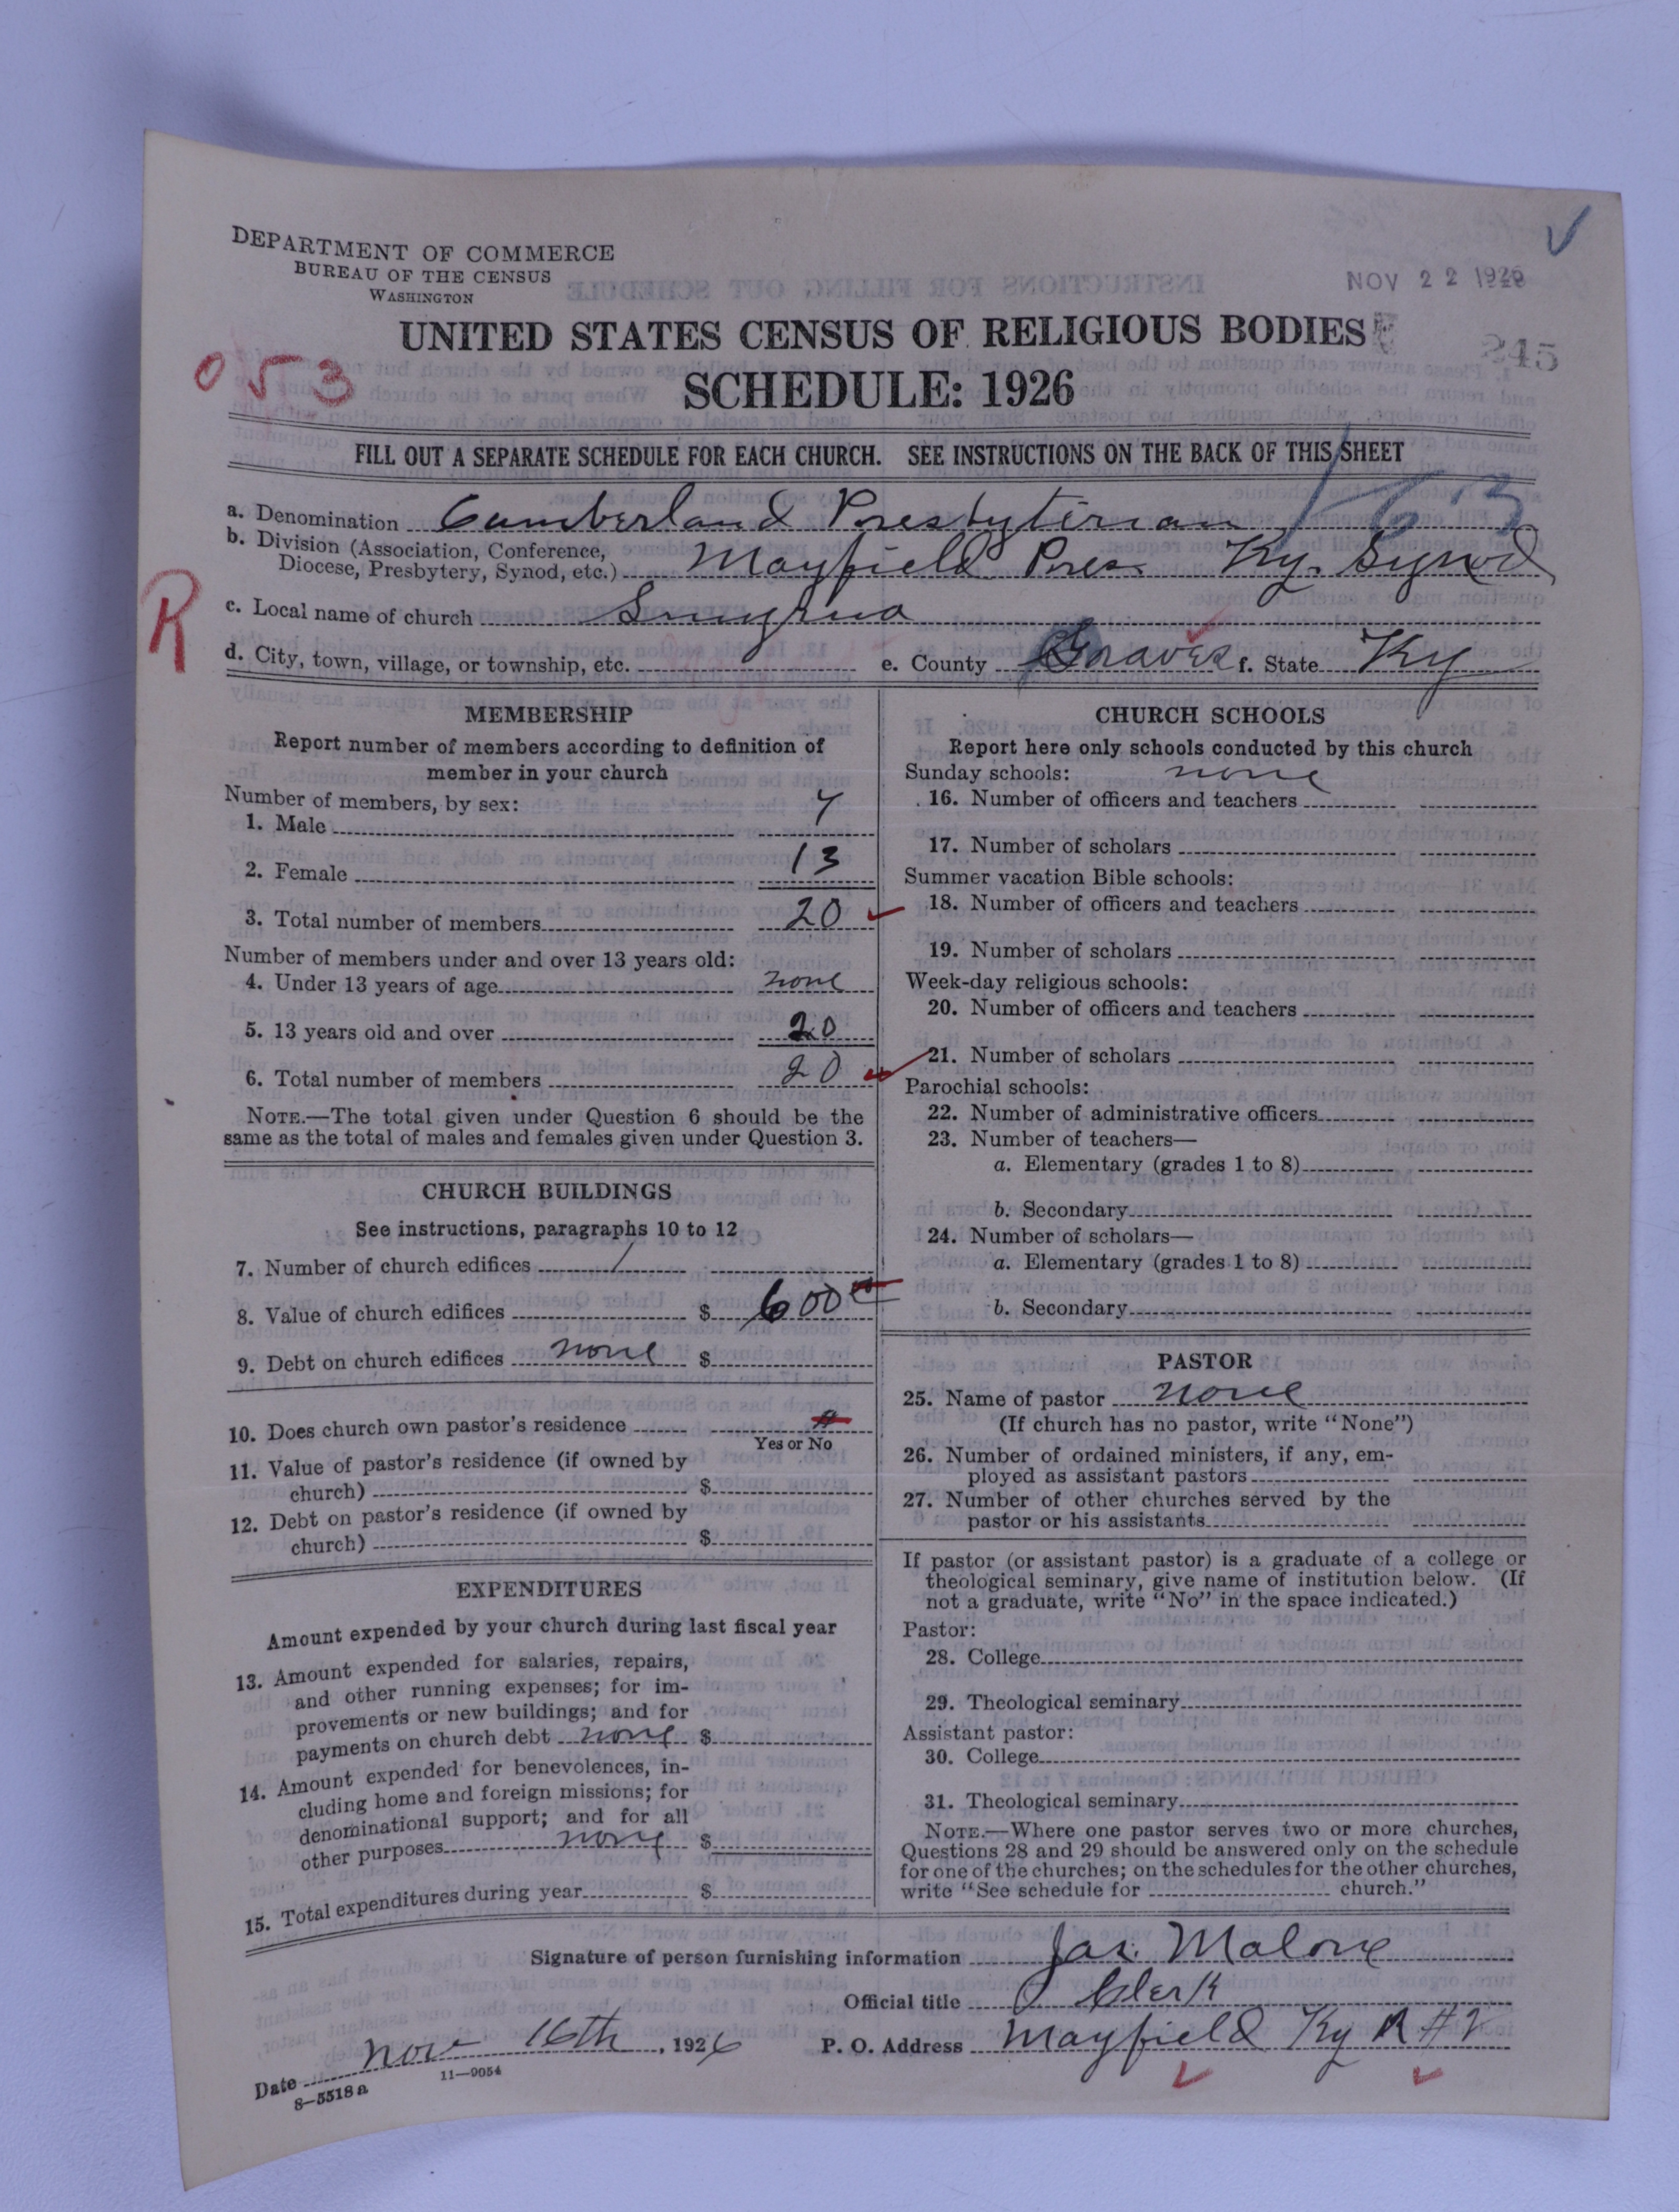 DEPARTMENT OF COMMERCE
BUREAU OF THE CENSUS
WASHINGTON
NOV 22 1926
UNITED STATES CENSUS OF RELIGIOUS BODIES
245
053
SCHEDULE: 1926
FILL OUT A SEPARATE SCHEDULE FOR EACH CHURCH. SEE INSTRUCTIONS ON THE BACK OF THIS SHEET
a. Denomination Cumberland Presbyterian
b. Division (Association, Conference,
Diocese, Presbytery, Synod, etc.) Mayfield Pres. Ky. Synod
R
c. Local name of church Smyrna
d. City, town, village, or township, etc. e. County Graves f. State Ky
MEMBERSHIP
Report number of members according to definition of
member in your church
Number of members, by sex:
1. Male 7
2. Female 13
3. Total number of members 20
Number of members under and over 13 years old:
4. Under 13 years of age none
5. 13 years old and over 20
6. Total number of members 20
NOTE.—The total given under Question 6 should be the
same as the total of males and females given under Question 3.
CHURCH BUILDINGS
See instructions, paragraphs 10 to 12
7. Number of church edifices 1
8. Value of church edifices $ 600
9. Debt on church edifices none $
10. Does church own pastor's residence
Yes or No
11. Value of pastor's residence (if owned by
church) $
12. Debt on pastor's residence (if owned by
church) $
EXPENDITURES
Amount expended by your church during last fiscal year
13. Amount expended for salaries, repairs,
and other running expenses; for im-
provements or new buildings; and for
payments on church debt none $
14. Amount expended for benevolences, in-
cluding home and foreign missions; for
denominational support; and for all
other purposes none $
15. Total expenditures during year $
CHURCH SCHOOLS
Report here only schools conducted by this church
Sunday schools: none
16. Number of officers and teachers
17. Number of scholars
Summer vacation Bible schools:
18. Number of officers and teachers
19. Number of scholars
Week-day religious schools:
20. Number of officers and teachers
21. Number of scholars
Parochial schools:
22. Number of administrative officers
23. Number of teachers—
a. Elementary (grades 1 to 8)
b. Secondary
24. Number of scholars—
a. Elementary (grades 1 to 8)
b. Secondary
PASTOR
25. Name of pastor none
(If church has no pastor, write "None")
26. Number of ordained ministers, if any, em-
ployed as assistant pastors
27. Number of other churches served by the
pastor or his assistants
If pastor (or assistant pastor) is a graduate of a college or
theological seminary, give name of institution below. (If
not a graduate, write "No" in the space indicated.)
Pastor:
28. College
29. Theological seminary
Assistant pastor:
30. College
31. Theological seminary
NOTE.—Where one pastor serves two or more churches,
Questions 28 and 29 should be answered only on the schedule
for one of the churches; on the schedules for the other churches,
write "See schedule for church."
Signature of person furnishing information Jas. Malone
Official title Clerk
Date Nov 16th, 1926 P. O. Address Mayfield Ky R #
8—5518a
11—9054